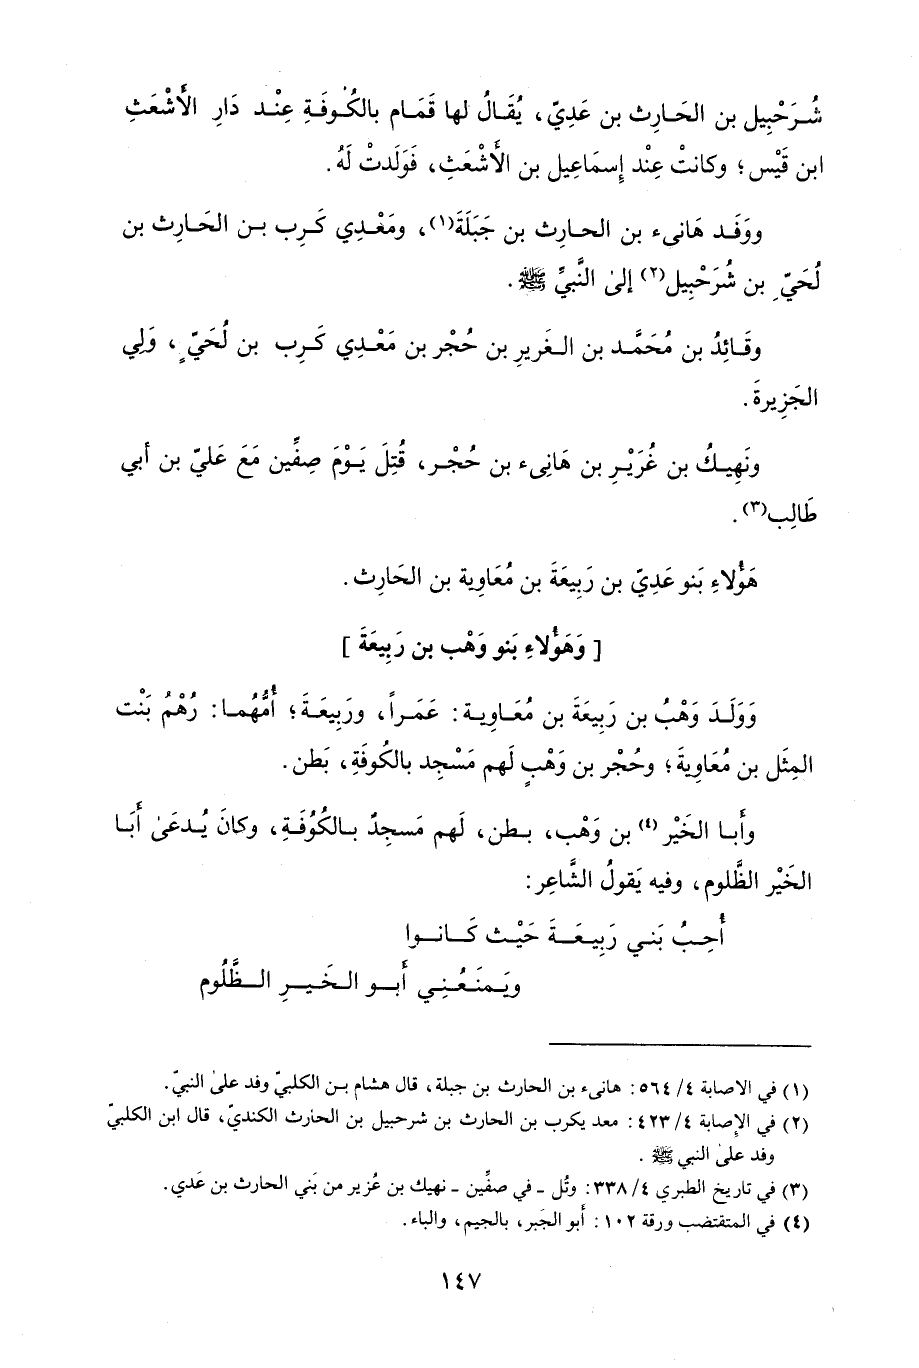 شُرَحْبِيل بن الحَارِث بن عَدِيّ، يُقَالُ لها قَمَام بالكُوفَةِ عِنْد دَارِ الأَشْعَثِ
ابن قَيْس؛ وكانتْ عِنْد إسمَاعِيل بن الأَشْعَثِ، فَوَلَدتْ لَهُ.
ووَفَد هَانىء بن الحارِث بن جَبَلَةَ(١)، ومَعْدِي كَرِب بن الحَارِث بن
لُحَيّ بن شُرَحْبِيل(٢) إلىٰ النَّبيِّ ﷺ.
وقَائِدُ بن مُحَمَّد بن الغَريرِ بن حُجْر بن مَعْدِي كَرِب بن لُحَيّ، وَلِي
الجَزِيرةَ.
ونَهِيكُ بن غُزَيْرِ بن هَانِىء بن حُجْر، قُتِلَ يَوْمَ صِفِّين مَعَ عَليّ بن أبي
طَالِب(٣).
هَؤُلاءِ بَنو عَدِيّ بن رَبِيعَةَ بن مُعَاوِية بن الحَارِث.
[ وَهَؤُلاءِ بَنو وَهْب بن رَبِيعَةَ ]
وَوَلَدَ وَهْبُ بن رَبِيعَةَ بن مُعَاوِية: عَمَراً، ورَبِيعَةَ؛ أُمُّهُما: رُهْمُ بَنْت
المِثَل بن مُعَاوِيةَ؛ وحُجْر بن وَهْبٍ لَهم مَسْجِد بالكُوفَةِ، بَطن.
وأَبا الخَيْر(٤) بن وَهْب، بطن، لَهم مَسجِدٌ بالكُوُفَةِ، وكانَ يُدعَىٰ أَبَا
الخَيْر الظَّلوم، وفيه يَقولُ الشَّاعِر:
أُحِبُ بَني رَبِيعَةَ حَيْث كَانوا
ويَمنَعُنِي أَبو الخَيرِ الظَّلُوم
(١) في الاصابة ٤/ ٥٦٤: هانىء بن الحارث بن جبلة، قال هشام بن الكلبيّ وفد علىٰ النبيّ.
(٢) في الإصابة ٤/ ٤٢٣: معد يكرب بن الحارث بن شرحبيل بن الحارث الكنديّ، قال ابن الكلبيّ
وفد علىٰ النبي ﷺ.
(٣) في تاريخ الطبري ٤/ ٣٣٨: وتُل ـ في صفِّين ـ نهيك بن عُزير من بَني الحارث بن عَدي.
(٤) في المتقتضب ورقة ١٠٢: أبو الجَبر، بالجيم، والباء.
١٤٧